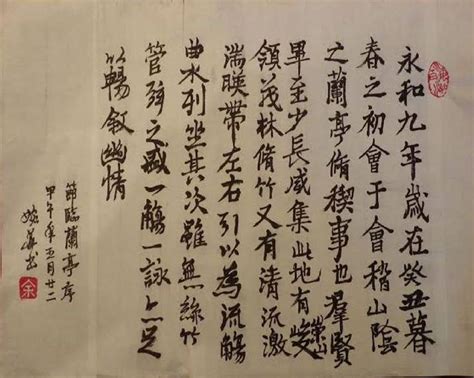 永和九年歲在癸丑暮
春之初會于會稽山陰
之蘭亭脩稧事也羣賢
畢至少長咸集此地有崇山峻
領茂林脩竹又有清流激
湍暎帶左右引以為流觴
曲水列坐其次雖無絲竹
管弦之盛一觴一詠亦足
以暢敘幽情
節臨蘭亭序
甲午年五月廿二
书
余